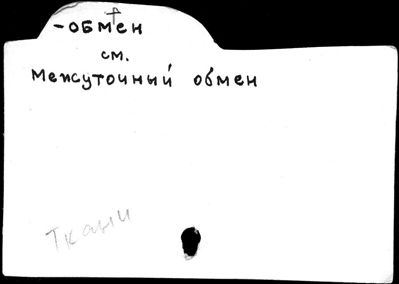 -обмен
см.
Межуточный обмен
Ткани